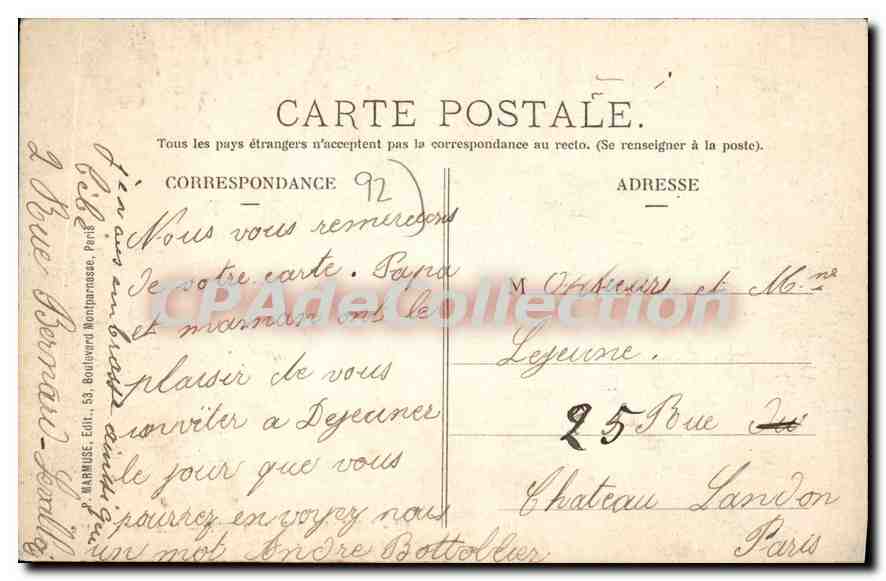 CARTE POSTALE.
Tous les pays étrangers n'acceptent pas la correspondance au recto. (Se renseigner à la poste).
CORRESPONDANCE
92
Nous vous remercions
de votre carte. Papa
et maman ont le
plaisir de vous
inviter a Dejeuner
le jour que vous
pourrez en voyez nous
un mot Andre Bottollier
ADRESSE
M et Mme
Lejeune.
25 Rue du
Chateau Landon
Paris
MARMUSE, Edit., 53, Boulevard Montparnasse, Paris
J'en vous embrasse ainsi que
bébé
2 Rue Bernard
CPAdeCollection